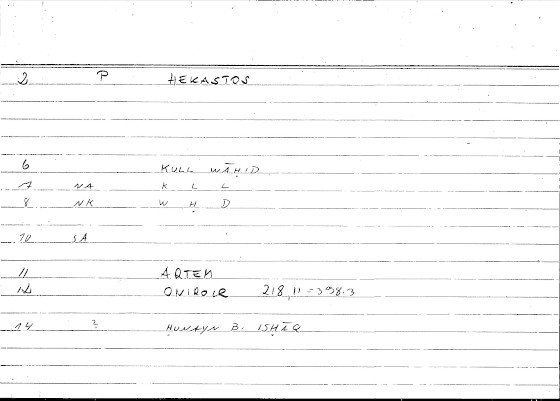 2 P HEKASTOS
6 KULL WĀḤID
7 NA K L L
8 NK W Ḥ D
10 SA
11 ARTEM
12 ONIROCR 218,11=398.3
14 2 ḤUNAYN B. ISḤĀQ